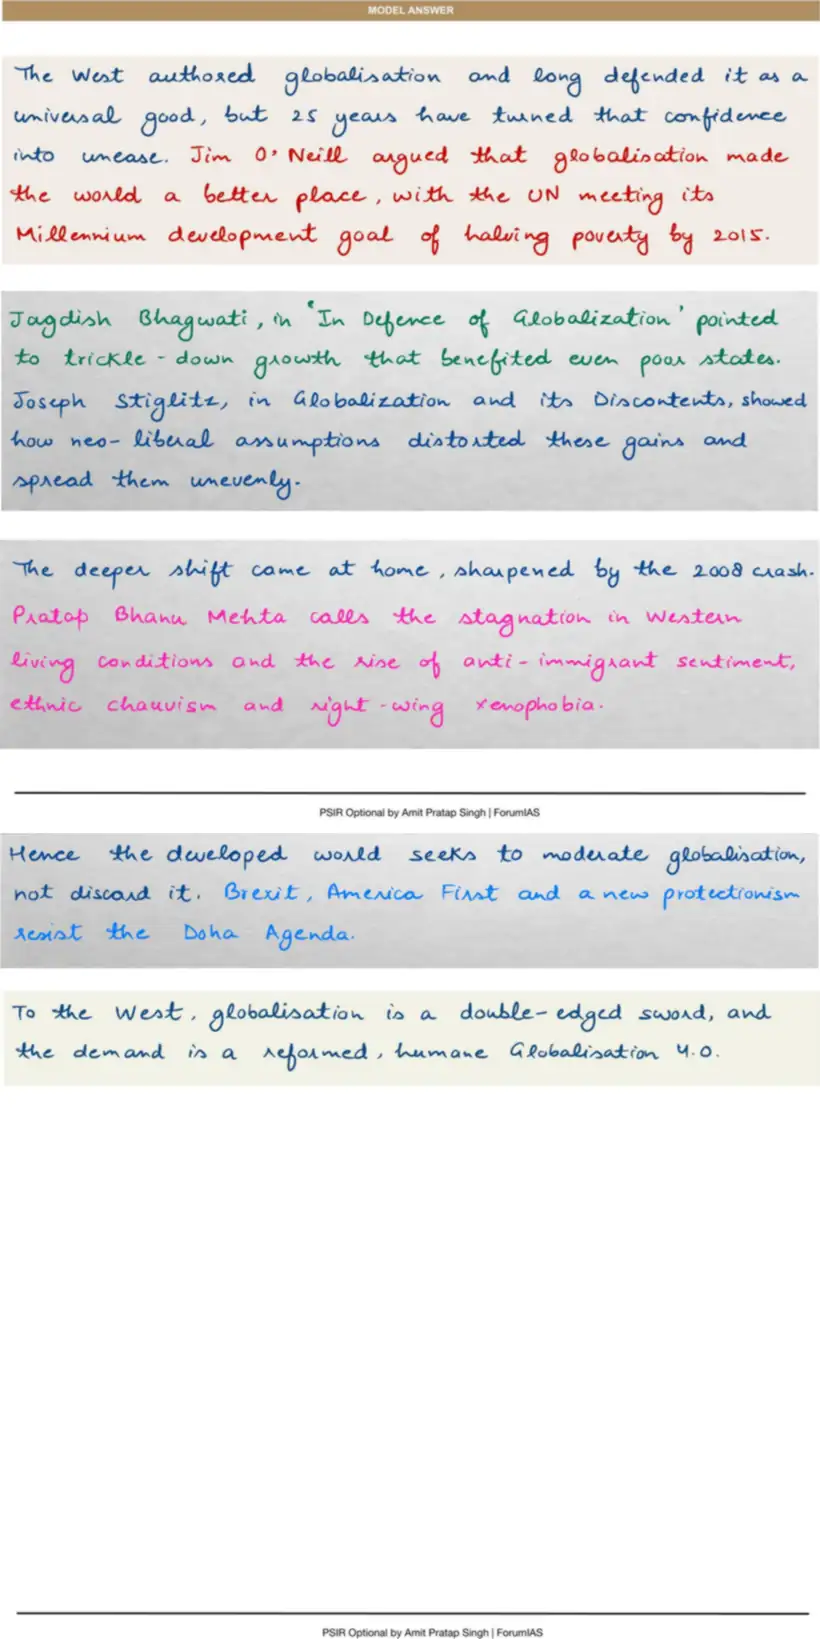 MODEL ANSWER
The West authored globalisation and long defended it as a
universal good, but 25 years have turned that confidence
into unease. Jim O'Neill argued that globalisation made
the world a better place, with the UN meeting its
Millennium development goal of halving poverty by 2015.
Jagdish Bhagwati, in 'In Defence of Globalization' pointed
to trickle-down growth that benefited even poor states.
Joseph Stiglitz, in Globalization and its Discontents, showed
how neo-liberal assumptions distorted these gains and
spread them unevenly.
The deeper shift came at home, sharpened by the 2008 crash.
Pratap Bhanu Mehta calls the stagnation in Western
living conditions and the rise of anti-immigrant sentiment,
ethnic chauvism and right-wing xenophobia.
PSIR Optional by Amit Pratap Singh | ForumIAS
Hence the developed world seeks to moderate globalisation,
not discard it. Brexit, America First and a new protectionism
resist the Doha Agenda.
To the West, globalisation is a double-edged sword, and
the demand is a reformed, humane Globalisation 4.0.
PSIR Optional by Amit Pratap Singh | ForumIAS